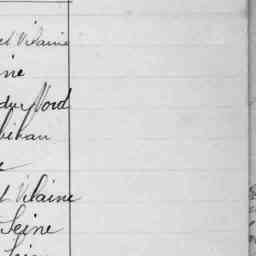 et Vilaine
ne
du Nord
bihan
e
t Vilaine
Seine